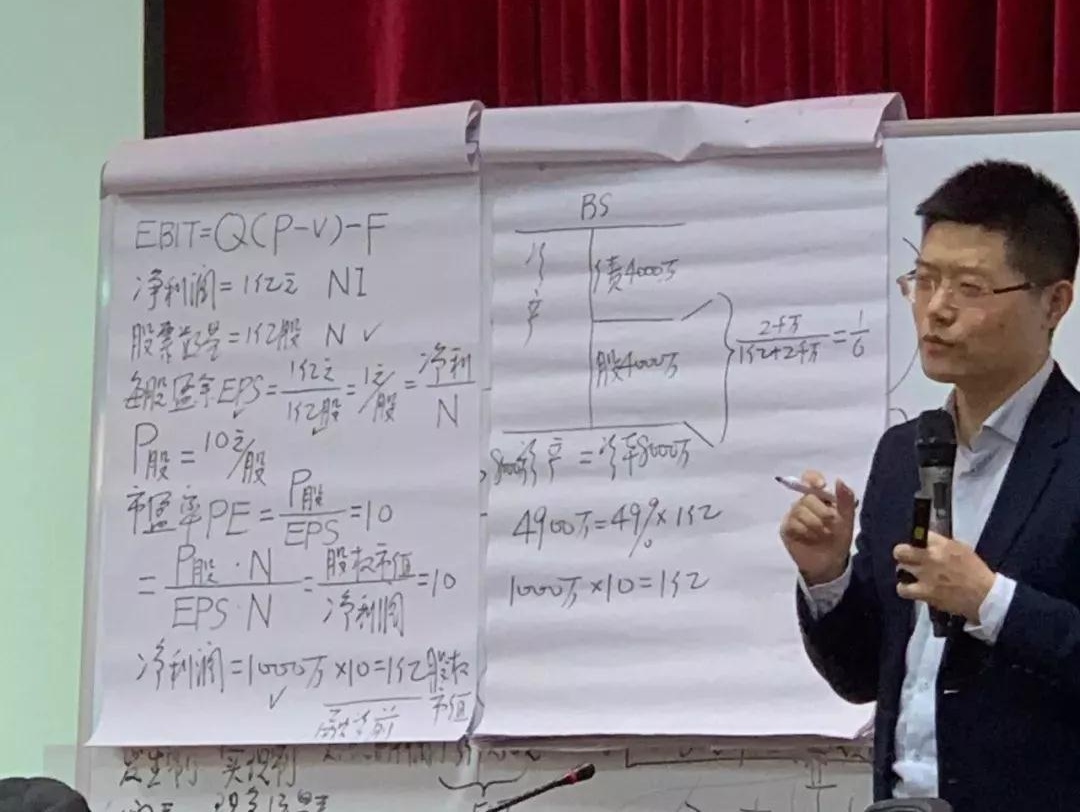 EBIT=Q(P-V)-F
净利润=1亿元 NI
股票总量=1亿股 N ✓
每股盈余EPS=1亿元/1亿股=1元/股=净利/N
P股=10元/股
市盈率PE=P股/EPS=10
=P股·N/EPS·N=股权市值/净利润=10
净利润=1000万×10=1亿股权市值
✓ 融资前
BS
资产
债4000万
股4000万
2千万/1亿+2千万=1/6
8000资产=资本8000万
4900万=49%×1亿
1000万×10=1亿